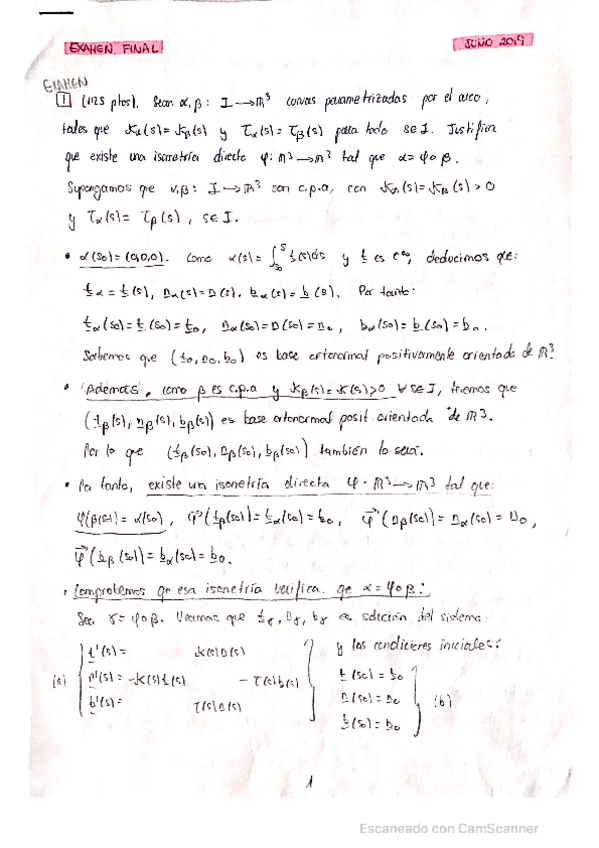 EXAMEN FINAL
JUNIO 2019
EXAMEN
1 (1,125 ptos). Sean α, β : I → ℝ³ curvas parametrizadas por el arco,
tales que Kα(s) = Kβ(s) y τα(s) = τβ(s) para todo s∈I. Justifica
que existe una isometría directa φ: ℝ³ → ℝ³ tal que α = φ∘β.
Supongamos que α, β : I → ℝ³ son c.p.a, con Kα(s) = Kβ(s) > 0
y τα(s) = τβ(s), s∈I.
• α(s₀) = (0,0,0). Como α(s) = ∫ₛ₀ˢ t(s)ds y t es C∞, deducimos que:
tα = t(s), nα(s) = n(s), bα(s) = b(s). Por tanto:
tα(s₀) = t(s₀) = t₀, nα(s₀) = n(s₀) = n₀, bα(s₀) = b(s₀) = b₀.
Sabemos que (t₀, n₀, b₀) es base ortonormal positivamente orientada de ℝ³
• Además, como β es c.p.a y Kβ(s) = K(s) > 0 ∀s∈I, tenemos que
(tβ(s), nβ(s), bβ(s)) es base ortonormal posit. orientada de ℝ³.
Por lo que (tβ(s₀), nβ(s₀), bβ(s₀)) también lo será.
• Por tanto, existe una isometría directa φ: ℝ³ → ℝ³ tal que:
φ(β(s₀)) = α(s₀), φ⃗(tβ(s₀)) = tα(s₀) = t₀, φ⃗(nβ(s₀)) = nα(s₀) = n₀,
φ⃗(bβ(s₀)) = bα(s₀) = b₀.
• Comprobemos qe esa isometría verifica qe α = φ∘β:
Sea γ = φ∘β. Veamos que tγ, nγ, bγ es solución del sistema:
t'(s) = K(s)n(s) y las condiciones iniciales:
(a) n'(s) = -K(s)t(s) - τ(s)b(s) t(s₀) = t₀
b'(s) = τ(s)n(s) n(s₀) = n₀ (b)
b(s₀) = b₀
1
Escaneado con CamScanner